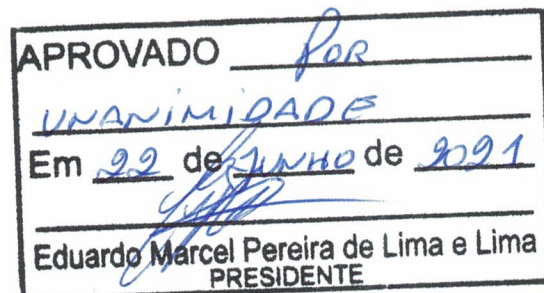 APROVADO POR
UNANIMIDADE
Em 22 de JUNHO de 2021
Eduardo Marcel Pereira de Lima e Lima
PRESIDENTE